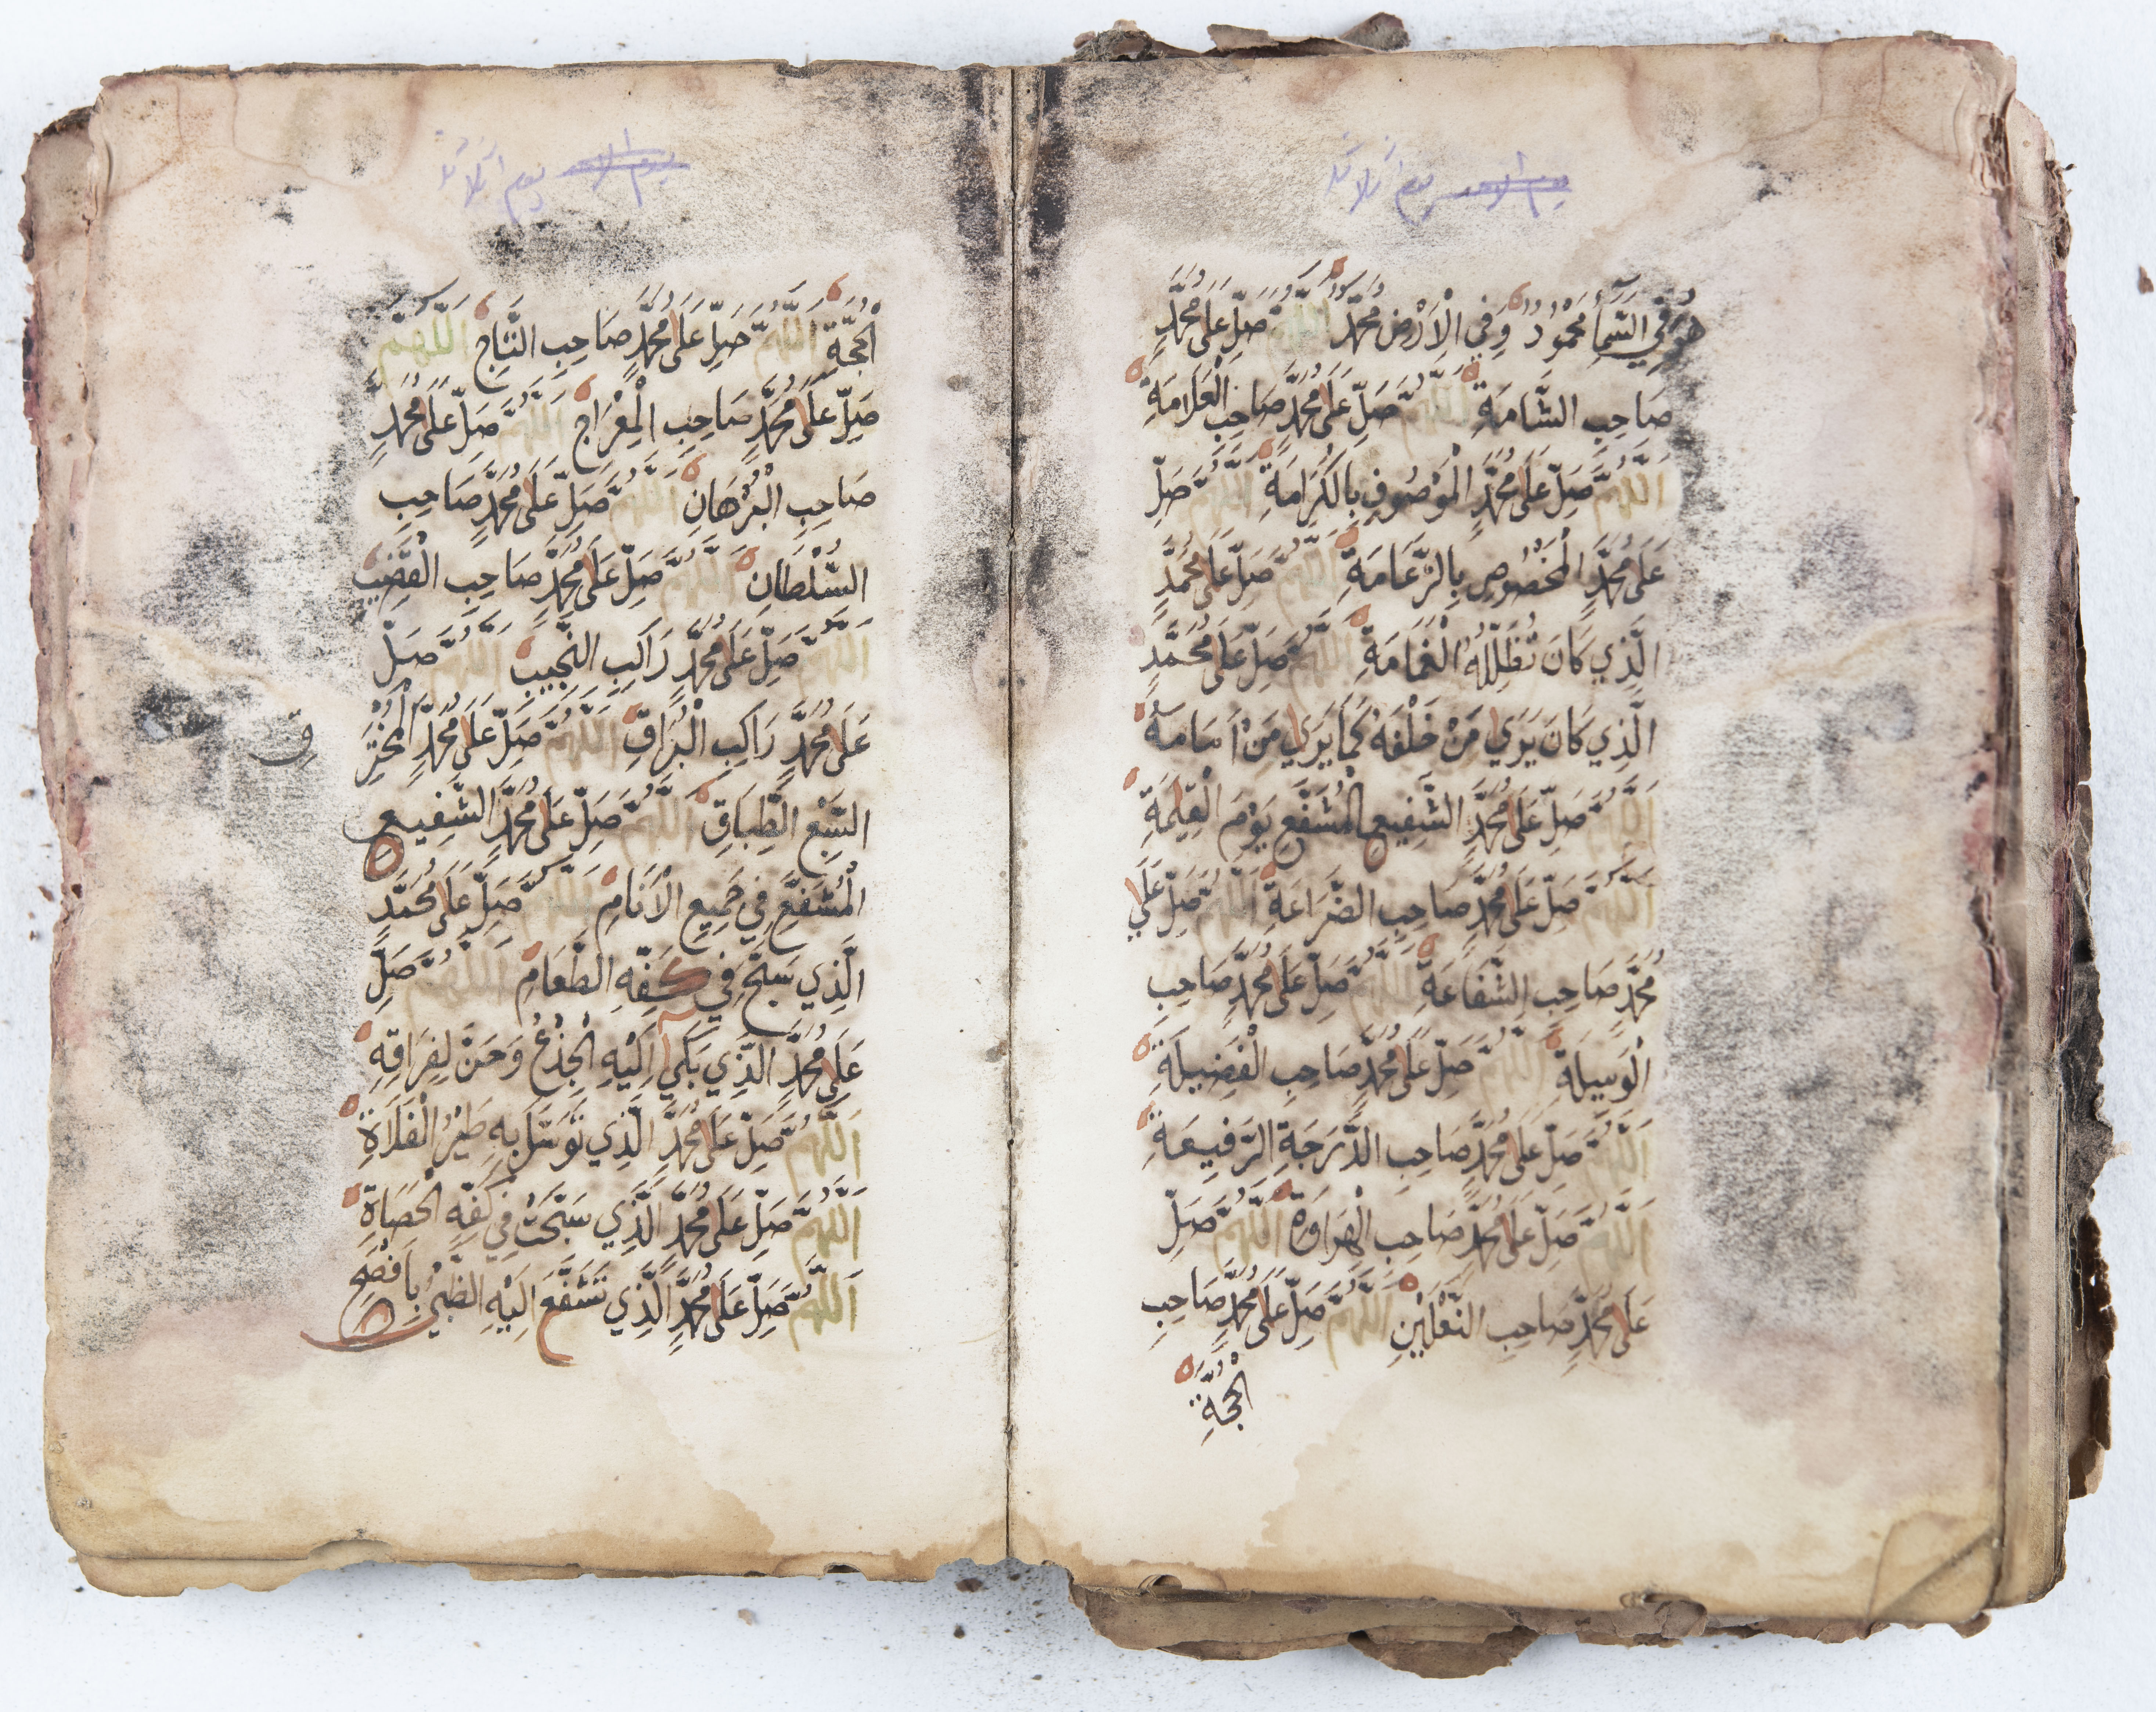 يوم الاحد يوم اثلاثة
هُوَ فِي السَّمَآءِ مَحْمُودٌ وَفِي الْاَرْضِ مُحَمَّدٌ اللّٰهُمَّ صَلِّ عَلَى مُحَمَّدٍ
صَاحِبِ الشَّامَةِ اللّٰهُمَّ صَلِّ عَلَى مُحَمَّدٍ صَاحِبِ الْعَلَامَةِ
اَللّٰهُمَّ صَلِّ عَلَى مُحَمَّدٍ الْمَوْصُوفِ بِالْكَرَامَةِ اللّٰهُمَّ صَلِّ
عَلَى مُحَمَّدٍ الْمَخْصُوصِ بِالزَّعَامَةِ اللّٰهُمَّ صَلِّ عَلَى مُحَمَّدٍ
الَّذِي كَانَ تُظَلِّلُهُ الْغَمَامَةُ اللّٰهُمَّ صَلِّ عَلَى مُحَمَّدٍ
الَّذِي كَانَ يَرَي مَنْ خَلْفَهُ كَمَا يَرَي مَنْ اَمَامَهُ
اَللّٰهُمَّ صَلِّ عَلَى مُحَمَّدٍ الشَّفِيعِ الْمُشَفَّعِ يَوْمَ الْقِيٰمَةِ
اَللّٰهُمَّ صَلِّ عَلَى مُحَمَّدٍ صَاحِبِ الضَّرَاعَةِ اَللّٰهُمَّ صَلِّ عَلَي
مُحَمَّدٍ صَاحِبِ الشَّفَاعَةِ اَللّٰهُمَّ صَلِّ عَلَى مُحَمَّدٍ صَاحِبِ
الْوَسِيلَةِ اللّٰهُمَّ صَلِّ عَلَى مُحَمَّدٍ صَاحِبِ الْفَضِيلَةِ
اَللّٰهُمَّ صَلِّ عَلَى مُحَمَّدٍ صَاحِبِ الدَّرَجَةِ الرَّفِيعَةِ
اَللّٰهُمَّ صَلِّ عَلَى مُحَمَّدٍ صَاحِبِ الْهَرَاوَةِ اللّٰهُمَّ صَلِّ
عَلَى مُحَمَّدٍ صَاحِبِ النَّعْلَيْنِ اَللّٰهُمَّ صَلِّ عَلَى مُحَمَّدٍ صَاحِبِ
الْحُجَّةِ
يوم الاحد يوم اثلاثة
الْحُجَّةِ اَللّٰهُمَّ صَلِّ عَلَى مُحَمَّدٍ صَاحِبِ التَّاجِ اَللّٰهُمَّ
صَلِّ عَلَى مُحَمَّدٍ صَاحِبِ الْمِعْرَاجِ اَللّٰهُمَّ صَلِّ عَلَى مُحَمَّدٍ
صَاحِبِ الْبُرْهَانِ اَللّٰهُمَّ صَلِّ عَلَى مُحَمَّدٍ صَاحِبِ
السُّلْطَانِ اَللّٰهُمَّ صَلِّ عَلَى مُحَمَّدٍ صَاحِبِ الْقَضِيبِ
اَللّٰهُمَّ صَلِّ عَلَى مُحَمَّدٍ رَاكِبِ النَّجِيبِ اَللّٰهُمَّ صَلِّ
عَلَى مُحَمَّدٍ رَاكِبِ الْبُرَاقِ اَللّٰهُمَّ صَلِّ عَلَى مُحَمَّدٍ الْمُخْتَرِ
ق
السَّبْعِ الطِّبَاقِ اَللّٰهُمَّ صَلِّ عَلَى مُحَمَّدٍ الشَّفِيعِ
الْمُشَفَّعِ فِي جَمِيعِ الْاَنَامِ اَللّٰهُمَّ صَلِّ عَلَى مُحَمَّدٍ
الَّذِي سَبَّحَ فِي كَفِّهِ الطَّعَامِ اَللّٰهُمَّ صَلِّ
عَلَى مُحَمَّدٍ الَّذِي بَكَيٓ اِلَيْهِ الْجِذْعُ وَحَنَّ لِفِرَاقِهِ
اَللّٰهُمَّ صَلِّ عَلَى مُحَمَّدٍ الَّذِي تَوَسَّلَ بِهِ طَيْرُ الْفَلَاةِ
اَللّٰهُمَّ صَلِّ عَلَى مُحَمَّدٍ الَّذِي سَبَّحَتْ فِي كَفِّهِ الْحَصَاةِ
اَللّٰهُمَّ صَلِّ عَلَى مُحَمَّدٍ الَّذِي تَشَفَّعَ اِلَيْهِ الظَّبْيُ بِاَفْصَحِ